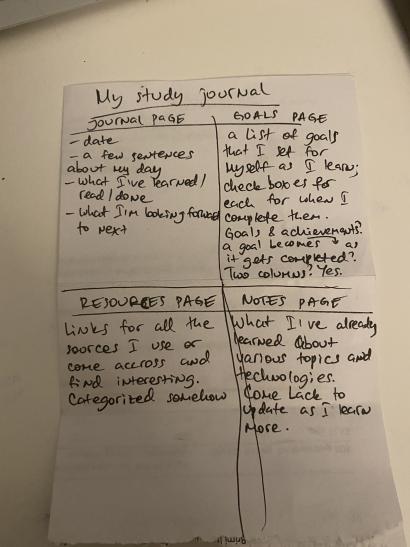 My study journal
JOURNAL PAGE
- date
- a few sentences
about my day
- what I've learned/
read/done
- what I'm looking forward
to next
GOALS PAGE
a list of goals
that I set for
myself as I learn;
checkboxes for
each for when I
complete them.
Goals & achievements?
a goal becomes ↓ as
it gets completed?
Two columns? Yes.
RESOURCES PAGE
Links for all the
sources I use or
come accross and
find interesting.
Categorized somehow
NOTES PAGE
What I've already
learned about
various topics and
technologies.
Come back to
update as I learn
more.